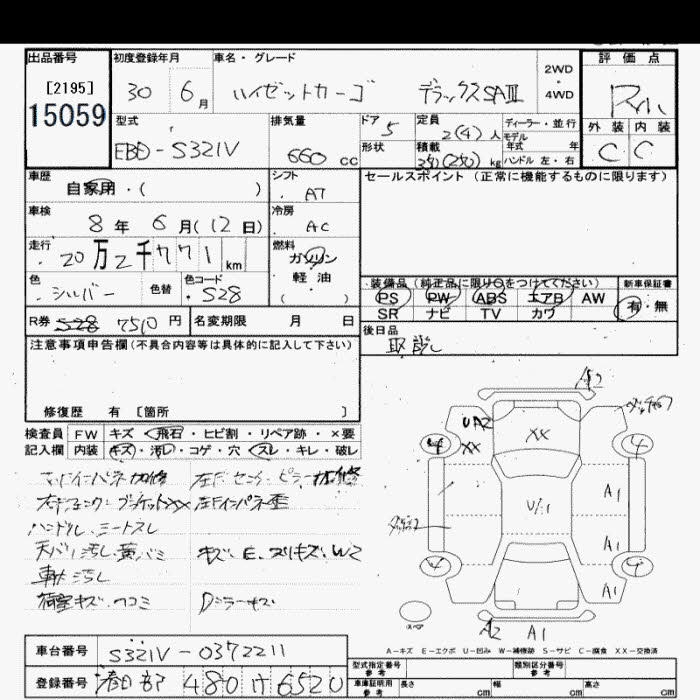 出品番号 初度登録年月 車名・グレード 評価点
[2195] 30 6月 ハイゼットカーゴ デラックスSAⅢ 2WD・4WD
15059
型式 排気量 ドア 5 定員 2(4)人 ディーラー・並行 外装 内装
モデル
EBD-S321V 660cc 形状 積載 kg 年式 年 C C
ハンドル 左・右
車歴 シフト セールスポイント(正常に機能するものに限ります)
自家用・( ) AT
車検 冷房
8年 6月(12日) AC
走行 燃料
20万2千771km ガソリン
軽油
( )
色 シルバー 色替 色コード S28
装備品(純正品に限り○をつけてください) 新車保証書
PS PW ABS エアB AW 有・無
SR ナビ TV カワ
R券 S28 7510円 名変期限 月 日
後日品
取説
注意事項申告欄(不具合内容等は具体的に記入して下さい)
修復歴 有 [箇所 ]
検査員 FW キズ・飛石・ヒビ割・リペア跡・×要
記入欄 内装 キズ・汚レ・コゲ・穴 スレ・キレ・破レ
ハンドル・シートスレ
天バリ汚レ キズ、E、スリキズ、W2
荷室キズ・凹コミ Dミラーキズ
A2
UA2
XX
XX
4 4
U/1
A1
A1
4 4
A1
A2 A1
A-キズ E-エクボ U-凹み W-補修跡 S-サビ C-腐食 XX-交換済
車台番号 S321V-0372211
登録番号 春日部 480 6520
型式指定番号 参考 類別区分番号 参考
車庫証明用 参考 長さ cm 幅 cm 高さ cm